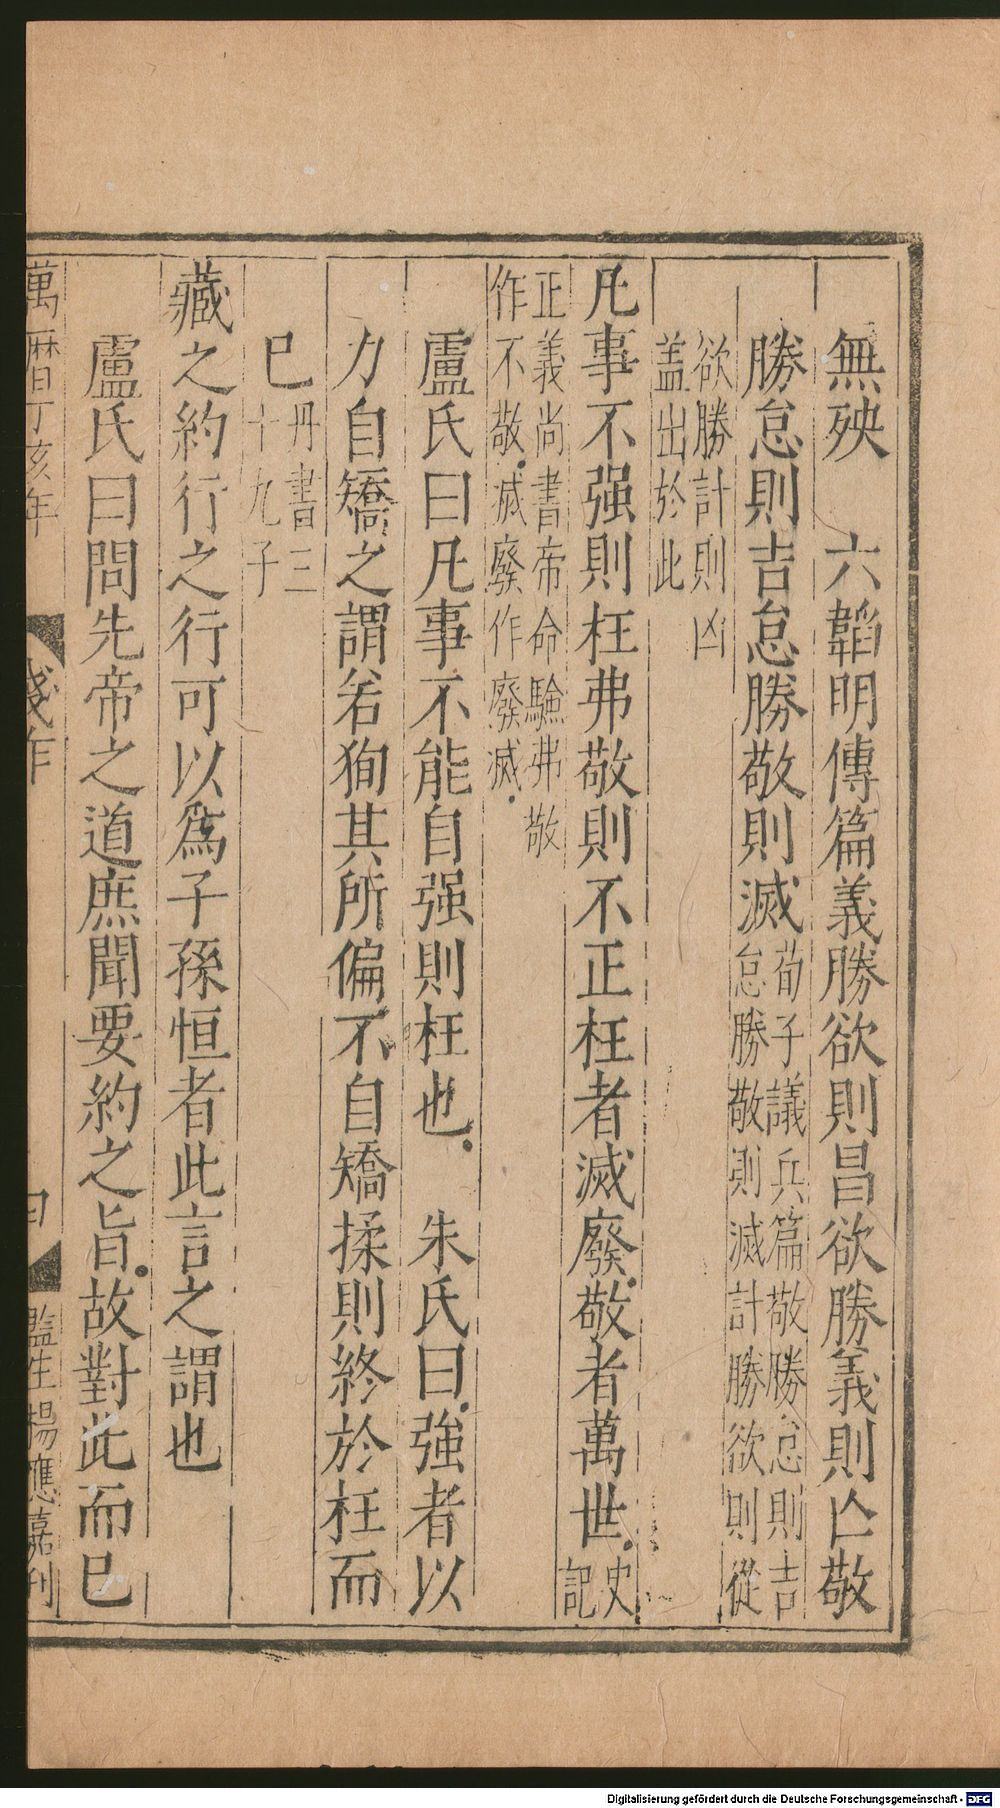 無殃　六韜明傳篇義勝欲則昌欲勝義則亾敬
勝怠則吉怠勝敬則滅
荀子議兵篇敬勝怠則吉
怠勝敬則滅計勝欲則從
欲勝計則凶
盖出於此
凡事不强則枉弗敬則不正枉者滅廢敬者萬世
史
記
正義尚書帝命驗弗敬
作不敬滅廢作廢滅
盧氏曰凡事不能自强則枉也　朱氏曰強者以
力自矯之謂若狥其所偏不自矯揉則終於枉而
巳
丹書三
十九子
藏之約行之行可以爲子孫恒者此言之謂也
盧氏曰問先帝之道庶聞要約之旨故對此而巳
萬曆丁亥年
踐阼
監生楊應嘉刋
Digitalisierung gefördert durch die Deutsche Forschungsgemeinschaft - DFG